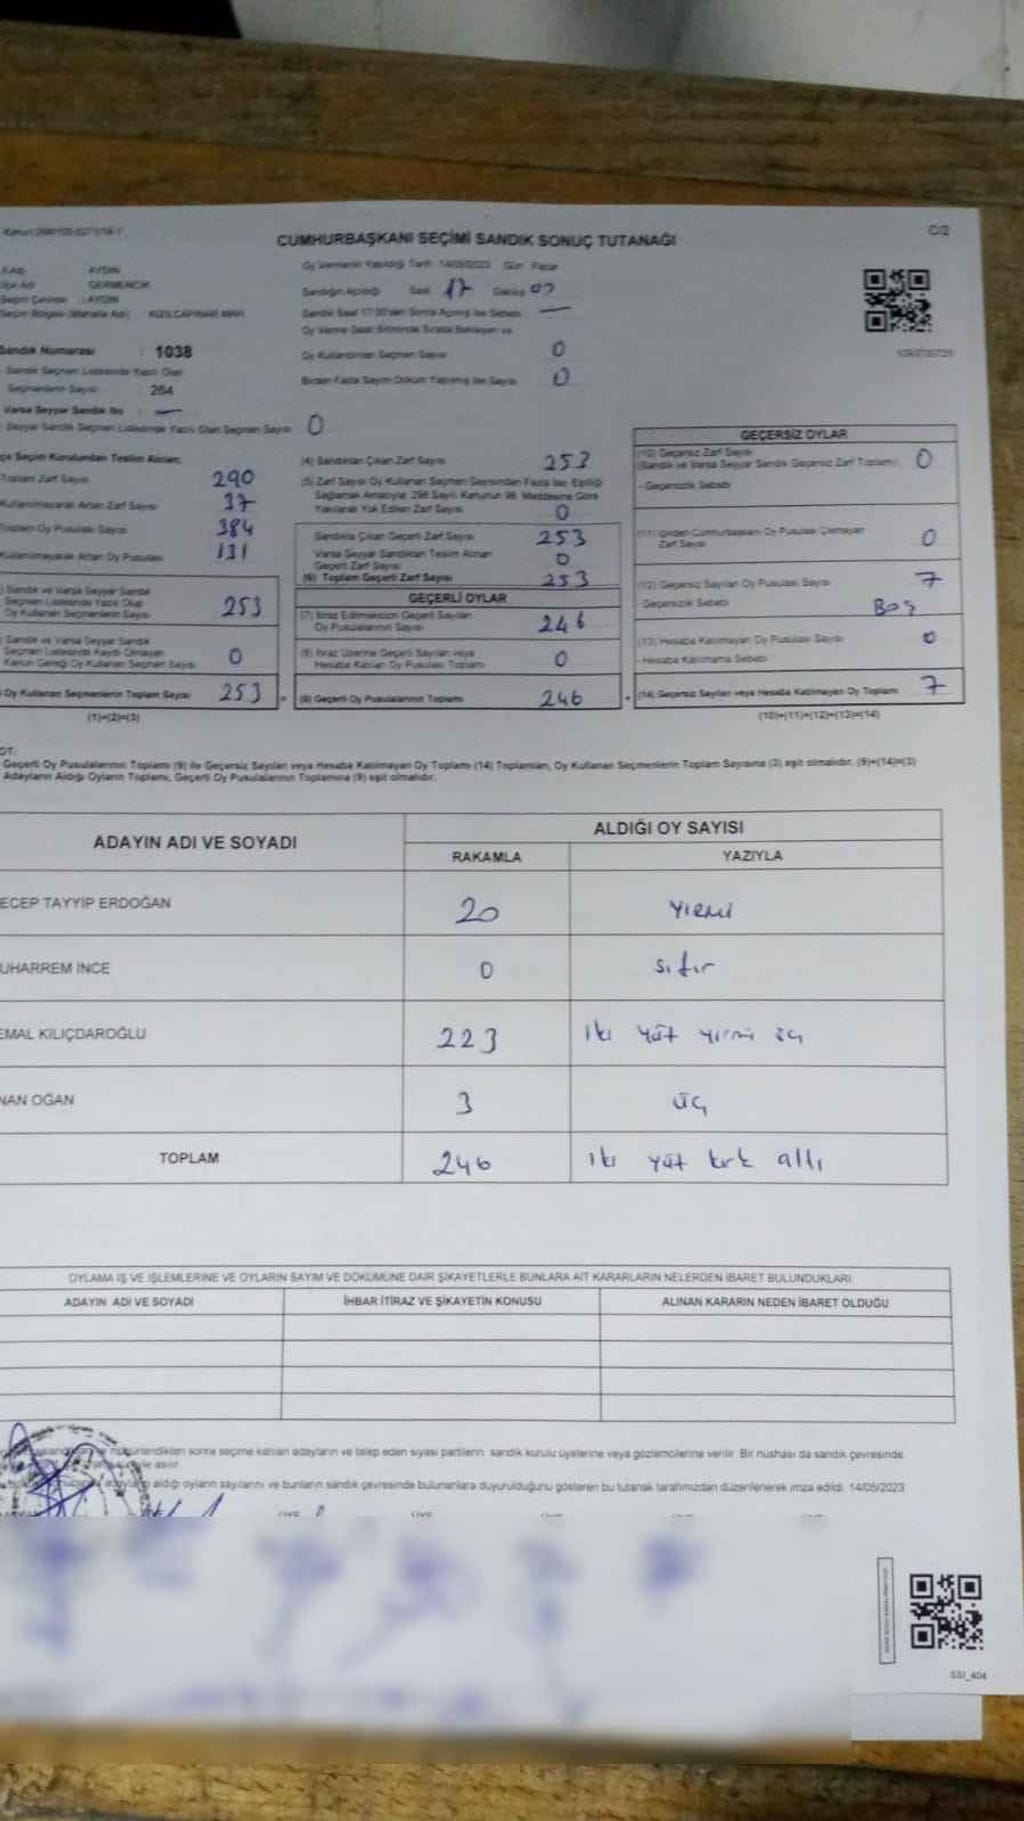 C/2
CUMHURBAŞKANI SEÇİMİ SANDIK SONUÇ TUTANAĞI
Oy Vermenin Yapıldığı Tarih: 14/05/2023 Gün: Pazar
Sandığın Açıldığı Saat 17 Dakika 07
: AYDIN
: GERMENCİK
: AYDIN
KIZILCAPINAR MAH
Sandık Saat 17:00'den Sonra Açılmış İse Sebebi —
Oy Verme Saati Bitiminde Sırada Bekleyen ve
Oy Kullandırılan Seçmen Sayısı 0
Birden Fazla Sayım Döküm Yapılmış İse Sayısı 0
Sandık Numarası : 1038
Sandık Seçmen Listesinde Yazılı Olan
Seçmenlerin Sayısı 264
Varsa Seyyar Sandık No —
Seyyar Sandık Seçmen Listesinde Yazılı Olan Seçmen Sayısı 0
çe Seçim Kurulundan Teslim Alınan:
Toplam Zarf Sayısı 290
Kullanılmayarak Artan Zarf Sayısı 37
Toplam Oy Pusulası Sayısı 384
Kullanılmayarak Artan Oy Pusulası 131
Sandık ve Varsa Seyyar Sandık
Seçmen Listesinde Yazılı Olup
Oy Kullanan Seçmenlerin Sayısı 253
Sandık ve Varsa Seyyar Sandık
Seçmen Listesinde Kayıtlı Olmayan
Kanun Gereği Oy Kullanan Seçmen Sayısı 0
Oy Kullanan Seçmenlerin Toplam Sayısı 253
(1)+(2)=(3)
(4) Sandıktan Çıkan Zarf Sayısı 253
(5) Zarf Sayısı Oy Kullanan Seçmen Sayısından Fazla İse, Eşitliği
Sağlamak Amacıyla 298 Sayılı Kanunun 98. Maddesine Göre
Yakılarak Yok Edilen Zarf Sayısı 0
Sandıkta Çıkan Geçerli Zarf Sayısı 253
Varsa Seyyar Sandıktan Teslim Alınan
Geçerli Zarf Sayısı 0
(6) Toplam Geçerli Zarf Sayısı 253
GEÇERLİ OYLAR
(7) İtiraz Edilmeksizin Geçerli Sayılan
Oy Pusulalarının Sayısı 246
(8) İtiraz Üzerine Geçerli Sayılan veya
Hesaba Katılan Oy Pusulası Toplamı 0
(9) Geçerli Oy Pusulalarının Toplamı 246
GEÇERSİZ OYLAR
(10) Geçersiz Zarf Sayısı
(Sandık ve Varsa Seyyar Sandık Geçersiz Zarf Toplamı) 0
- Geçersizlik Sebebi
(11) İçinden Cumhurbaşkanı Oy Pusulası Çıkmayan
Zarf Sayısı 0
(12) Geçersiz Sayılan Oy Pusulası Sayısı 7
- Geçersizlik Sebebi Boş
(13) Hesaba Katılmayan Oy Pusulası Sayısı 0
- Hesaba Katılmama Sebebi
(14) Geçersiz Sayılan veya Hesaba Katılmayan Oy Toplamı 7
(10)+(11)+(12)+(13)=(14)
OT:
Geçerli Oy Pusulalarının Toplamı (9) ile Geçersiz Sayılan veya Hesaba Katılmayan Oy Toplamı (14) Toplamları, Oy Kullanan Seçmenlerin Toplam Sayısına (3) eşit olmalıdır. (9)+(14)=(3)
Adayların Aldığı Oyların Toplamı, Geçerli Oy Pusulalarının Toplamına (9) eşit olmalıdır.
ADAYIN ADI VE SOYADI
ALDIĞI OY SAYISI
RAKAMLA YAZIYLA
ECEP TAYYİP ERDOĞAN 20 yirmi
UHARREM İNCE 0 sıfır
EMAL KILIÇDAROĞLU 223 iki yüz yirmi üç
NAN OĞAN 3 üç
TOPLAM 246 iki yüz kırk altı
OYLAMA İŞ VE İŞLEMLERİNE VE OYLARIN SAYIM VE DÖKÜMÜNE DAİR ŞİKAYETLERLE BUNLARA AİT KARARLARIN NELERDEN İBARET BULUNDUKLARI
ADAYIN ADI VE SOYADI İHBAR İTİRAZ VE ŞİKAYETİN KONUSU ALINAN KARARIN NEDEN İBARET OLDUĞU
mühürlendikten sonra seçime katılan adayların ve talep eden siyasi partilerin sandık kurulu üyelerine veya gözlemcilerine verilir. Bir nüshası da sandık çevresinde
asılır
aldığı oyların sayılarını ve bunların sandık çevresinde bulunanlara duyurulduğunu gösteren bu tutanak tarafımızdan düzenlenerek imza edildi. 14/05/2023
SSI_404